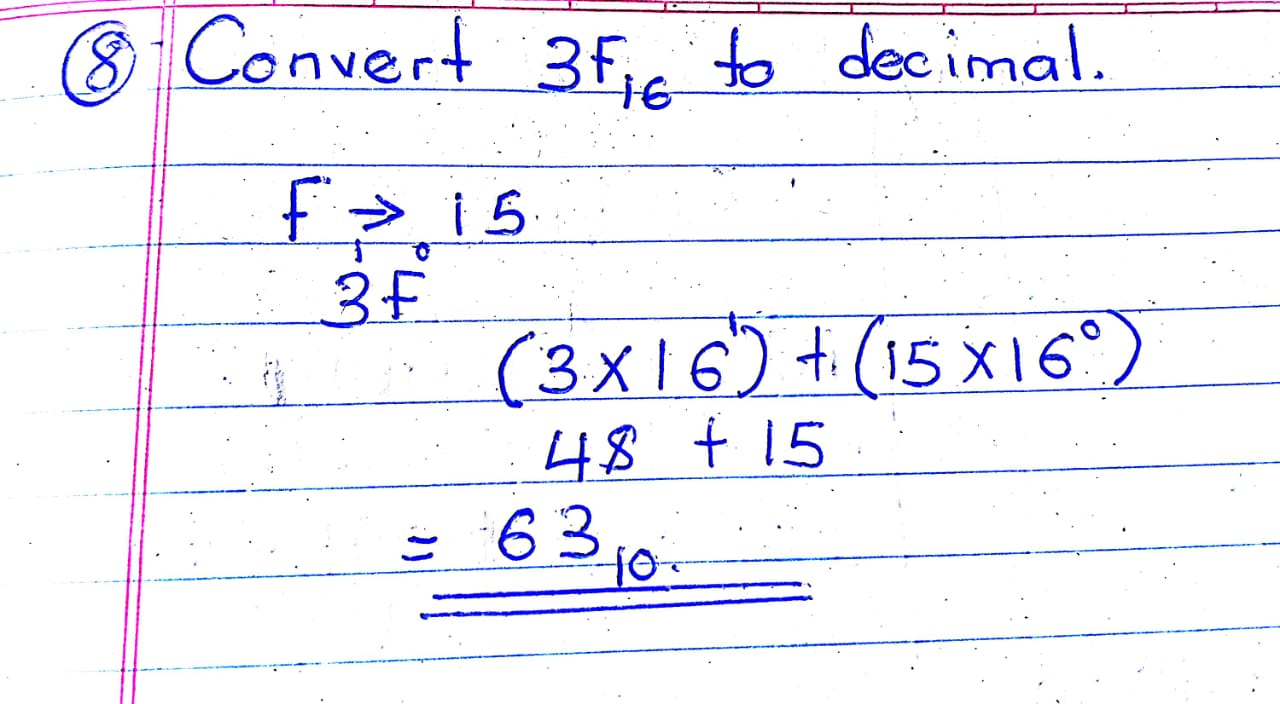 ⑧ Convert 3F₁₆ to decimal.
F → 15
1 0
3F
(3×16¹) + (15×16⁰)
48 + 15
= 63₁₀.